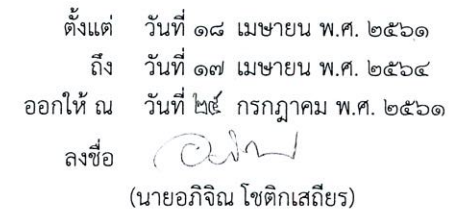 ตั้งแต่ วันที่ ๑๘ เมษายน พ.ศ. ๒๕๖๑
ถึง วันที่ ๑๗ เมษายน พ.ศ. ๒๕๖๔
ออกให้ ณ วันที่ ๒๔ กรกฎาคม พ.ศ. ๒๕๖๑
ลงชื่อ
(นายอภิจิณ โชติกเสถียร)